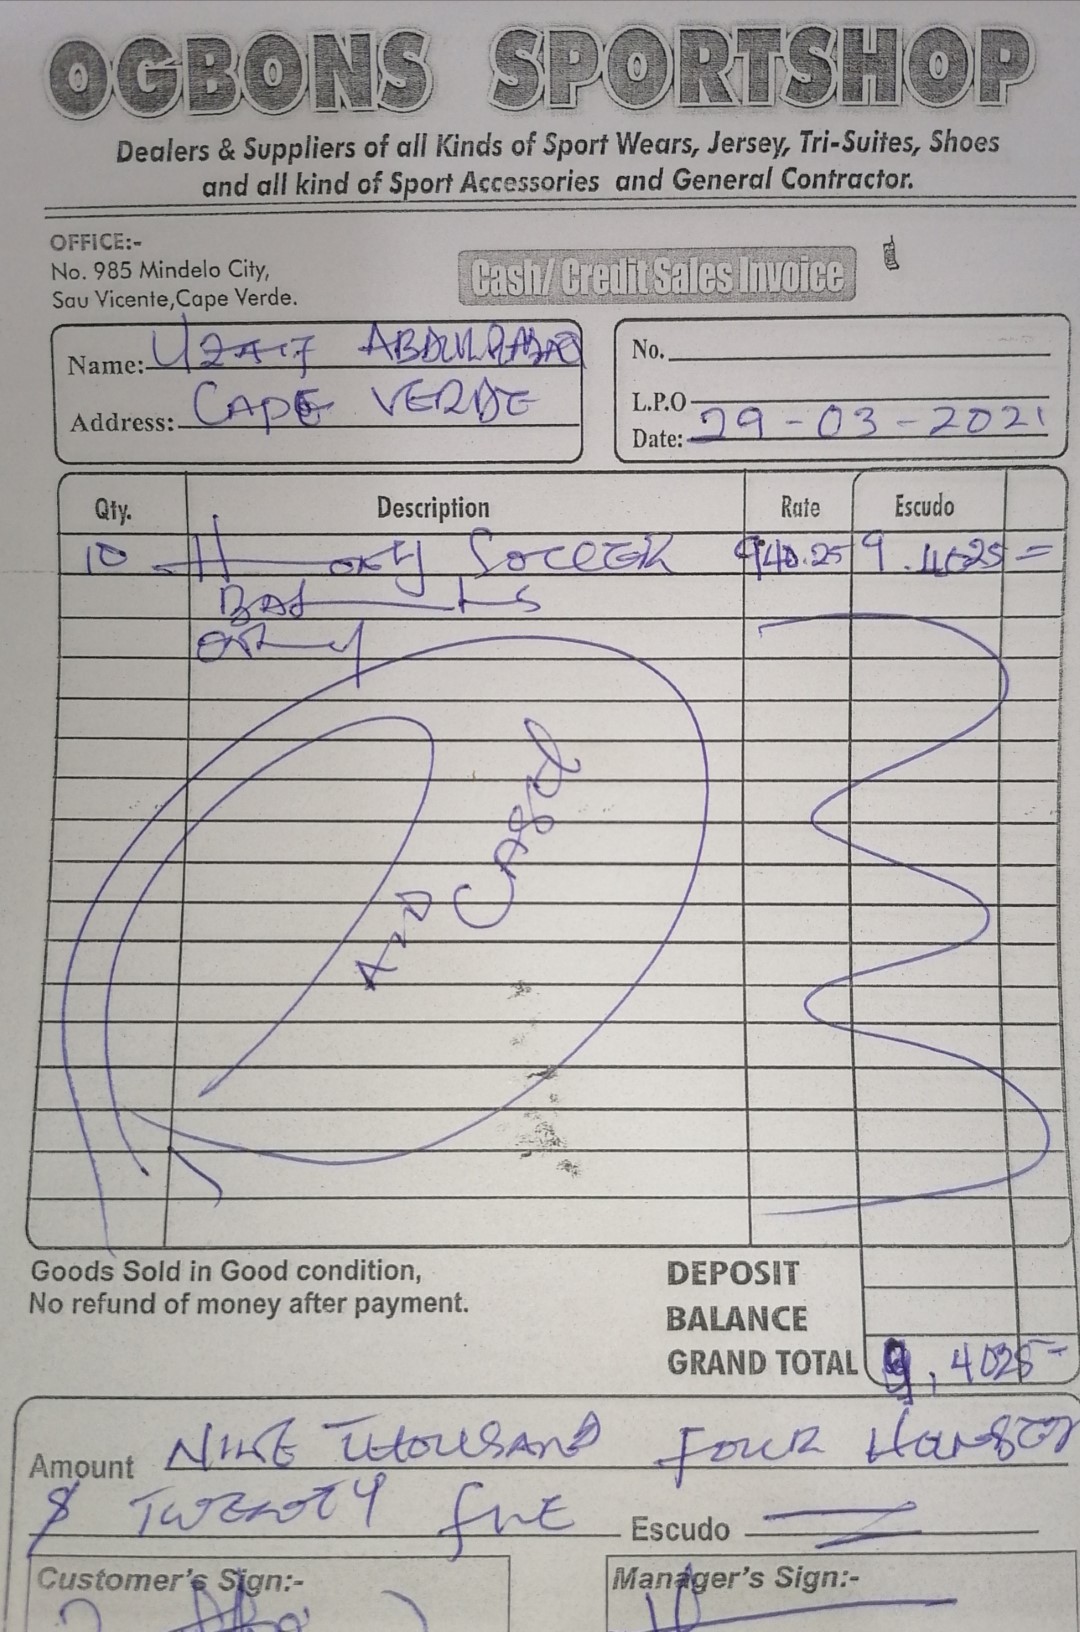 OGBONS SPORTSHOP
Dealers & Suppliers of all Kinds of Sport Wears, Jersey, Tri-Suites, Shoes
and all kind of Sport Accessories and General Contractor.
OFFICE:-
No. 985 Mindelo City,
Sau Vicente,Cape Verde.
Cash/ Credit Sales Invoice
Name:
Address: CAPE VERDE
No.
L.P.O
Date: 29-03-2021
Qty. Description Rate Escudo
10 SOCCER 940.25 9.4025=
Goods Sold in Good condition,
No refund of money after payment.
DEPOSIT
BALANCE
GRAND TOTAL 9,4025=
Amount NINE THOUSAND FOUR
& TWENTY FIVE Escudo
Customer's Sign:-
Manager's Sign:-